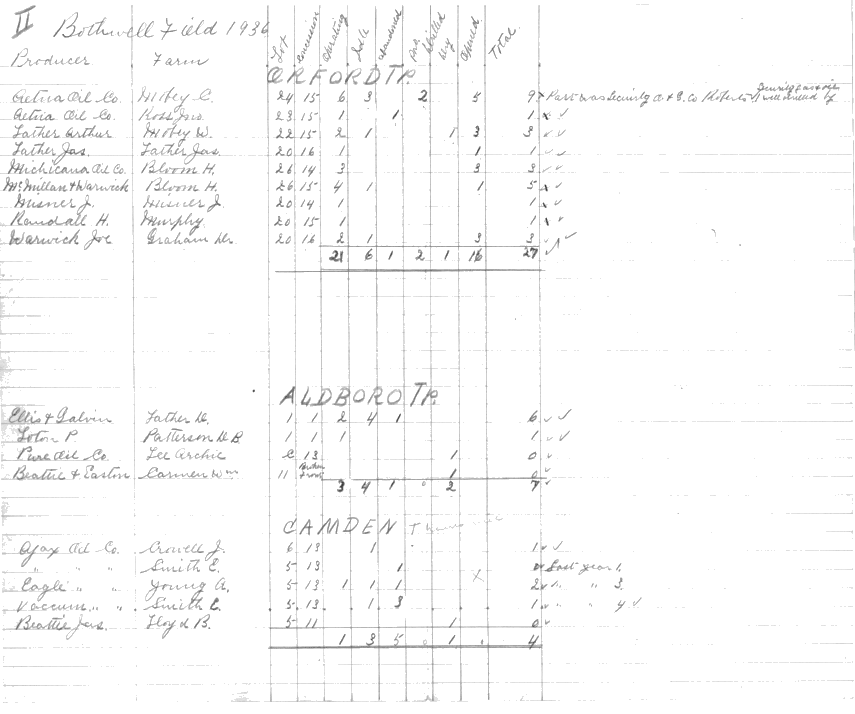 II Bothwell Field 1936
Producer Farm Lot Concession Operating Idle Abandoned Drilled Dry Total
ORFORD TP.
Aetna Oil Co. C. 24 15 6 3 2 5 9 Part was Security O. & G. Co.
Aetna Oil Co. Ross Jno. 23 15 1 1 1
Lather Arthur W. 22 15 2 1 1 3 3
Lather Jas. Lather Jas. 20 16 1 1 1
Michicana Oil Co. Bloom H. 26 14 3 3 3
McMillan & Warwick Bloom H. 26 15 4 1 1 5
Misner J. Misner J. 20 14 1 1
Randall H. Murphy 20 15 1 1
Warwick Joe Graham 20 16 2 1 3 3
21 6 1 2 1 16 27
ALDBORO TP.
Ellis & Galvin Lather D. 1 1 2 4 1 6
P. Patterson D B. 1 1 1 1
Pure Oil Co. Lee Archie C 13 1 0
Beattie & Easton Carmen Wm 11 Broken Front 1 0
3 4 1 0 2 7
CAMDEN
Ajax Oil Co. Crowell J. 6 13 1 1
" " " Smith E. 5 13 1 0 Last year 1.
Eagle " " Young A. 5 13 1 1 1 2 " " 3
Vaccum " " Smith E. 5 13 1 3 1 " " 4
Beattie Jas. Lloyd B. 5 11 1 0
1 3 5 0 1 . 4